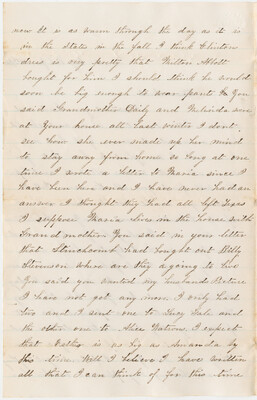 now It is as warm through the day as it is
in the states in the fall I think Clinton
dress is very pretty that Milton Abbott
bought for him I should think he would
soon be big enough to wear pants You
said Grandmother Daily and Malinda was
at Your house all last winter I dont
see how she ever made up her mind
to stay away from home so long at one
time I wrote a letter to Maria since I
have been here and I have never had an
answer I thought they had all left
I suppose Maria lives in the house with
Grandmother You said in your letter
that had bought out Billy
Stevenson where are they agoing to live
You said you wanted my husbands Picture
I have not got any more I only had
two and I sent one to Lucy and
the other one to Alice I expect
that is as big as Amanda by
this time Well I believe I have written
all that I can think of for this time